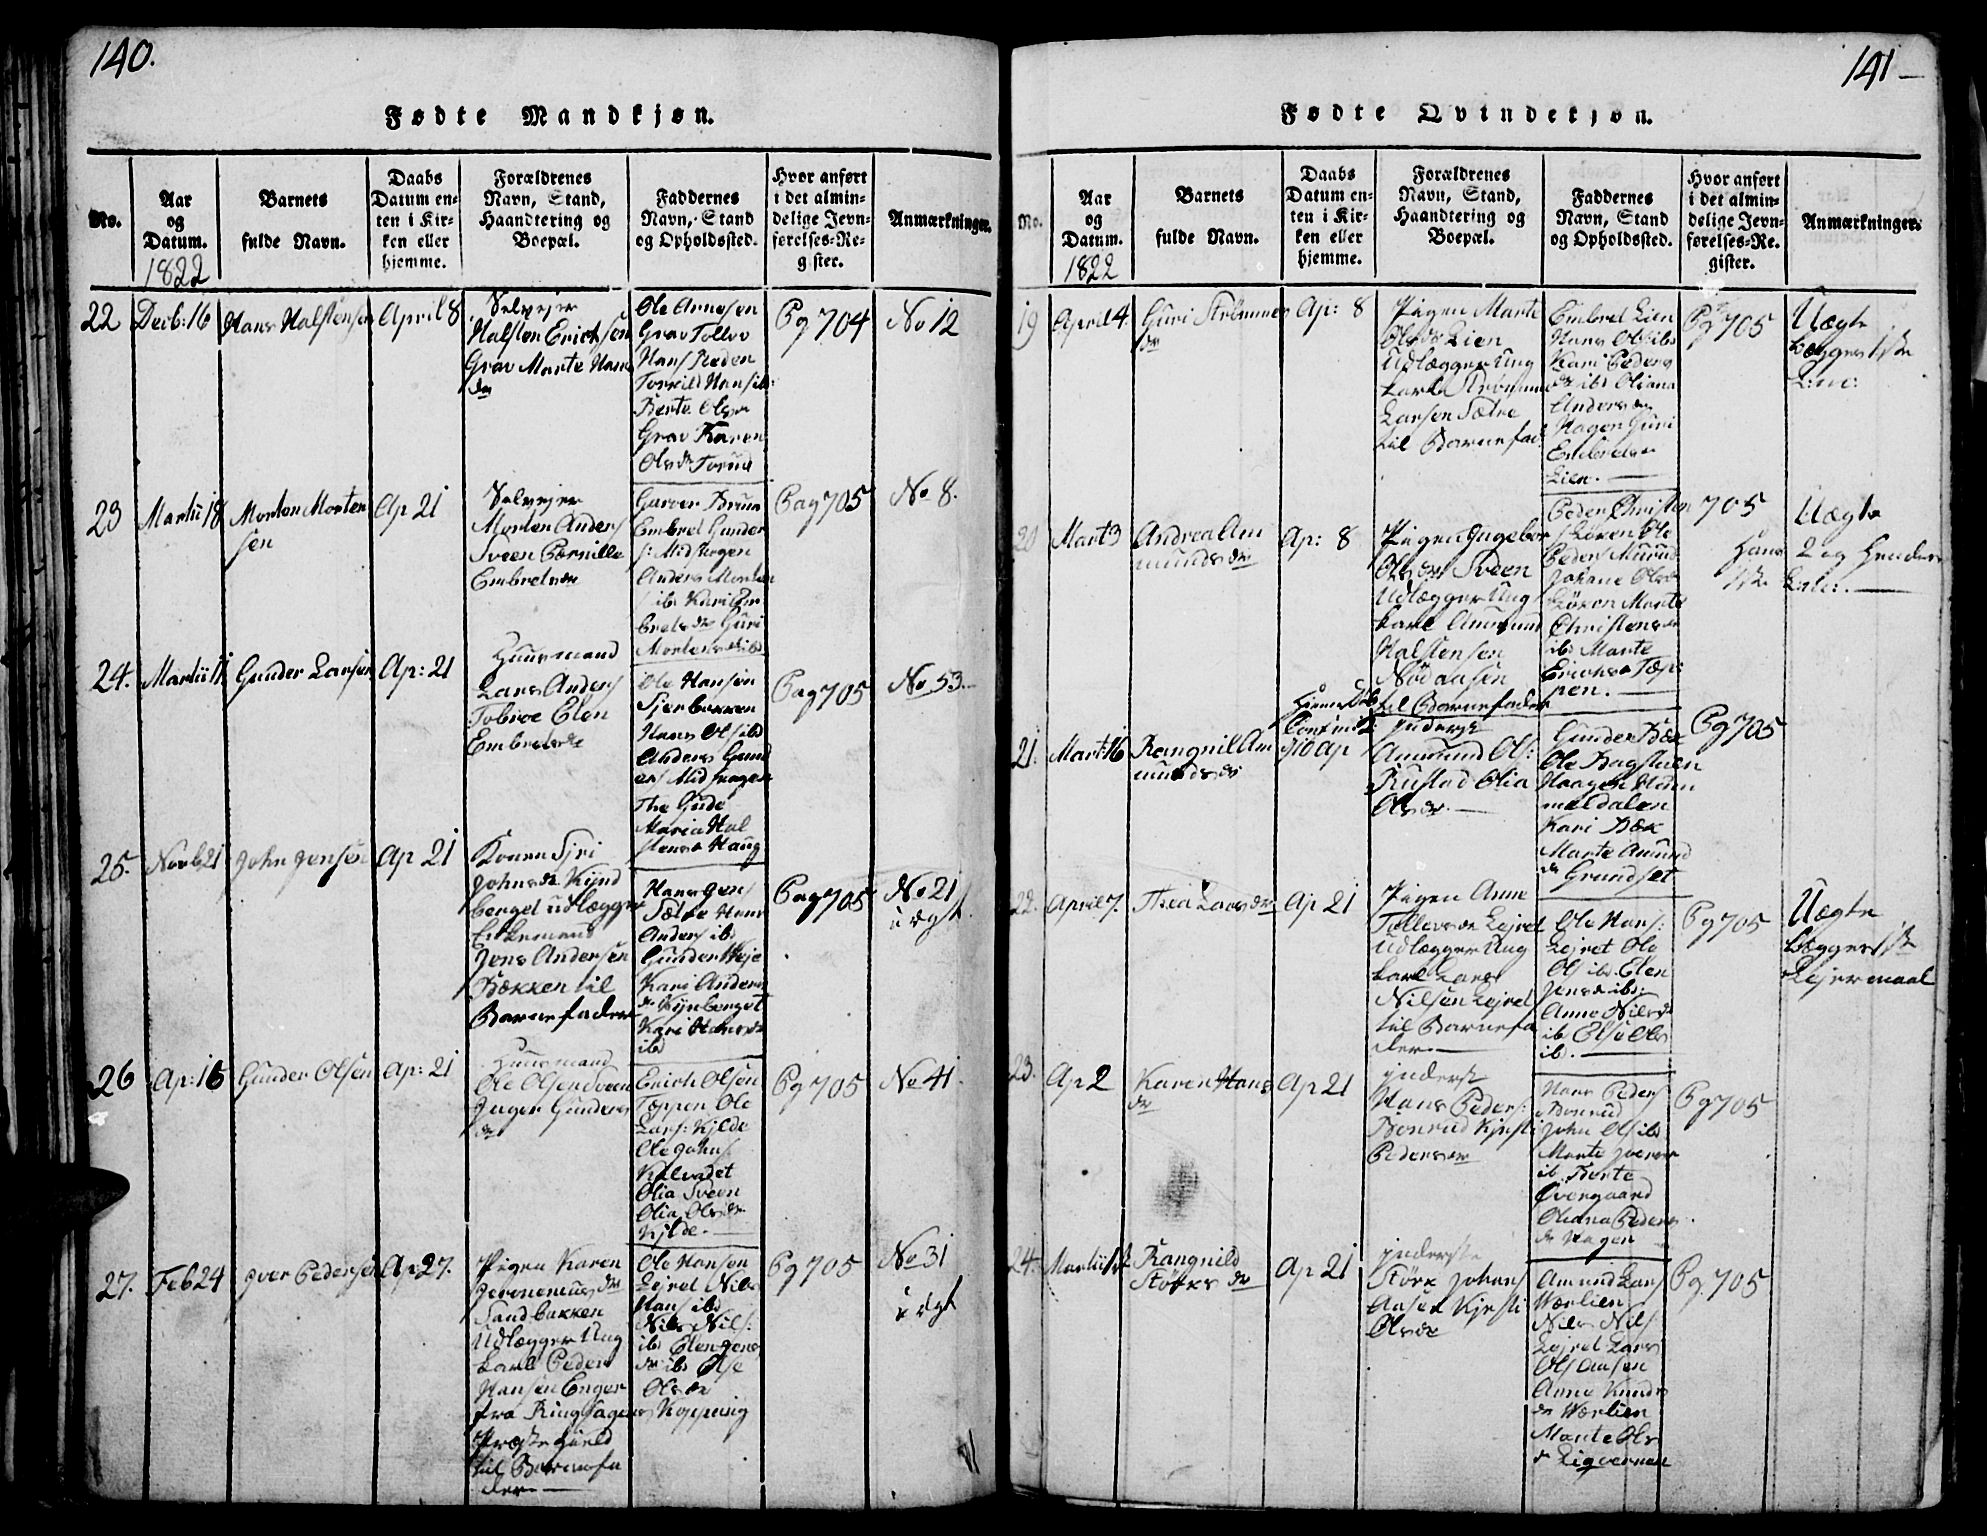 140.
Fødte Mandkjøn.
No.
Aar
og
Datum.
1822
Barnets
fulde Navn.
Daabs
Datum en-
ten i Kir-
ken eller
hjemme.
Forældrenes
Navn, Stand,
Haandtering og
Boepæl.
Faddernes
Navn, Stand
og Opholdssted.
Hvor anført
i det almin-
delige Jevn-
førelses-Re-
gister.
Anmærkninger.
22
Decb: 16
Hans Halstensen
April 8
Selvejer
Halsten Erichsen
Grav Marte Hans
dr
Ole Arnesen
Grav Tollev
Hans
Torvild Hans ibd:
Berte Olsdr
Grav Karen
Olsdr Torud
Pg 704
No 12
23
Martii 18
Morten Morten
sen
Ap 21
Selvejer
Morten Anders
Sveen Pernille
Embretsdr
Garver Bruun
Embret Gunder
s: Midskogen
Anders Morten
s ibd Kari Em
bretsdr Guri
Mortensdr ibd
Pag 705
No 8.
24.
Martii 11
Gunder Larsen
Ap: 21
Huusmand
Lars Anders
Tobroe Elen
Embretsdr
Ole Hansen
Sjerbakken
Hans Ols ibd
Anders Gund
ers Midskogen
The Gude
Maria Hal
stensdr Haug
Pag 705
No 53.
25.
Novb 21
John Jensen
Ap 21
Konen Siri
Johnsdr Kynd
berget udlægger
Enkemand
Jens Andersen
Bækken til
Barnefader
Hans Jens
Sætre Hans
Anders ibd
Gunder Weje
Kari Anders
dr Kynberget
Kari Hansdr
ibd
Pag 705
No 21
uægt.
26
Ap: 16
Gunder Olsen
Ap: 21
Huusmand
Ole Olsen Sveen
Inger Gunders
dr
Erich Olsen
Tæppen Ole
Lars: Kilde
Ole Johns
Kalvadet
Olia Sveen
Olia Olsdr
Kilde.
Pg 705
No 41.
27.
Feb 24
Iver Pedersen
Ap 27.
Pigen Karen
Jeronemusdr
Sandbakken
Udlægger Ung
karl Peder
Hansen Enger
fra Ringsager
Præstegield
til Barnefa
der.
Ole Hansen
Lejret Nils
Hans ibd
Nils Nils:
ibd Elen Jens
dr ibd Else
Olsdr
Kopperug
Pg 705
No 31
uægt
141
Fødte Qvindekjøn.
No.
Aar
og
Datum.
1822
Barnets
fulde Navn.
Daabs
Datum en-
ten i Kir-
ken eller
hjemme.
Forældrenes
Navn, Stand,
Haandtering og
Boepæl.
Faddernes
Navn, Stand
og Opholdssted.
Hvor anført
i det almin-
delige Jevn-
førelses-Re-
gister.
Anmærkninger.
19
April 4.
Guri Strømmes
dr
Ap: 8
Pigen Marte
Olsdr Lien
Udlægger Ung
karl Strømme
Larsen Sætre
til Barnefad.
Embret Lien
Hans Ols ibd
Kari Peders
dr ibd Oliana
Andersdr
Hagen Guri
Embretsdr
Lien.
Pg 705
Uægte
begges 1ste
20
Mart 3
Andrea Am
mundsdr
Ap: 8
Pigen Ingebor
Olsdr Sveen
Udlægger Ung
karl Ammund
Halstensen
Nødaasen
til Barnefader
Peder Christen
s Løken Ole
Peders Muruud
Johane Olsdr
Løken Marte
Christensdr
ibd Marte
Erichsdr Tæp
pen.
705
Uægte
Hans 2 og Hendes
1ste
21.
Mart: 16
Rangnil Am
mundsdr
Hjemedøb
10 Ap
Inderst
Ammund Ols:
Rustad Olia
Olsdr.
Gunder Bæk
Ole Bagstuen
Haagen Hum
meldalen
Kari Bæk
Marte Amund
dr Grundset
Pg 705
22.
April 7.
Thea Larsdr
Ap 21
Pigen Anne
Tollevsdr Lejret
Udlægger Ung
karl Lars
Nilsen Lejret
til Barnefa
der.
Ole Hans:
Lejret Ole
Ols ibd Elen
Jensdr ibd:
Anne Nilsdr
ib Else Ols
ib.
Pg 705
Uægte
begges 1ste
Lejermaal
23.
Ap 2
Karen Hans
dr
Ap 21
Inderst
Hans Peders:
Bonrud Kjersti
Pedersdr
Hans Peders
Bonrud
John Ols ibd
Marte Iversdr
ib Berte
Overgaard
Oliana Peders
dr Hagen
Pg 705
24.
Martii
Rangnild
Størksdr
Ap 21
Inderste
Størk Johans
Aasen Kjersti
Olsdr
Amund Lars
Wærlien
Nils Nils
Lejret Lars
Ols Aasen
Anne Knuds
dr Wærlien
Marte Ols
dr Ligvernen
Pg. 705